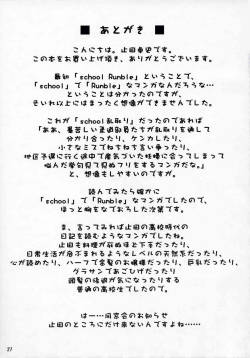 ■ あとがき ■
こんにちは。止田卓史です。
この本をお買い上げ頂き、ありがとうございます。
最初「school Rumble」ということで、
「school」で「Rumble」なマンガなんだろうな…
ということは分かったのですが、
それ以上にはまったく想像ができませんでした。
これが「school乱取り」だったのであれば
「ああ、暑苦しい柔道部員たちが乱取りを通して
分かり合ったり、ケンカしたり、
小さなミスでねちねち言われたり、
地区予選に行く途中で産気づいた妊婦に会ってしまって
悩んだ挙句見て見ぬフリをするマンガだな。」
と、想像もしやすいのですが。
読んでみたら確かに
「school」で「Rumble」なマンガでしたので、
ほっと胸をなでおろした次第です。
ま、言ってみれば止田の高校時代の
日記を読むようなマンガでしたね。
止田も料理が苦手ほど下手だったり、
日常生活が危ぶまれるようなレベルの天然系だったり、
心が読めたり、ハーフで金髪のお嬢様だったり、巨乳だったり、
グラサンであごひげだったり
頭髪の後退が気になったりする
普通の高校生でしたので。
は…同窓会のお知らせ
止田のところにだけ来ないんですよね……
27